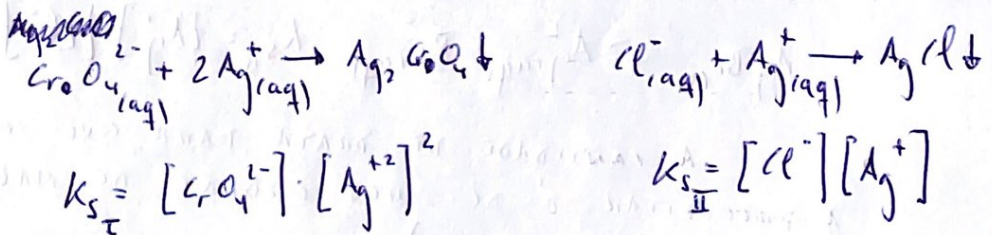 CrO₄²⁻(aq) + 2Ag⁺(aq) → Ag₂CrO₄↓ Cl⁻(aq) + Ag⁺(aq) → AgCl↓
K_{S_I} = [CrO₄²⁻]·[Ag⁺²]² K_{S_II} = [Cl⁻][Ag⁺]